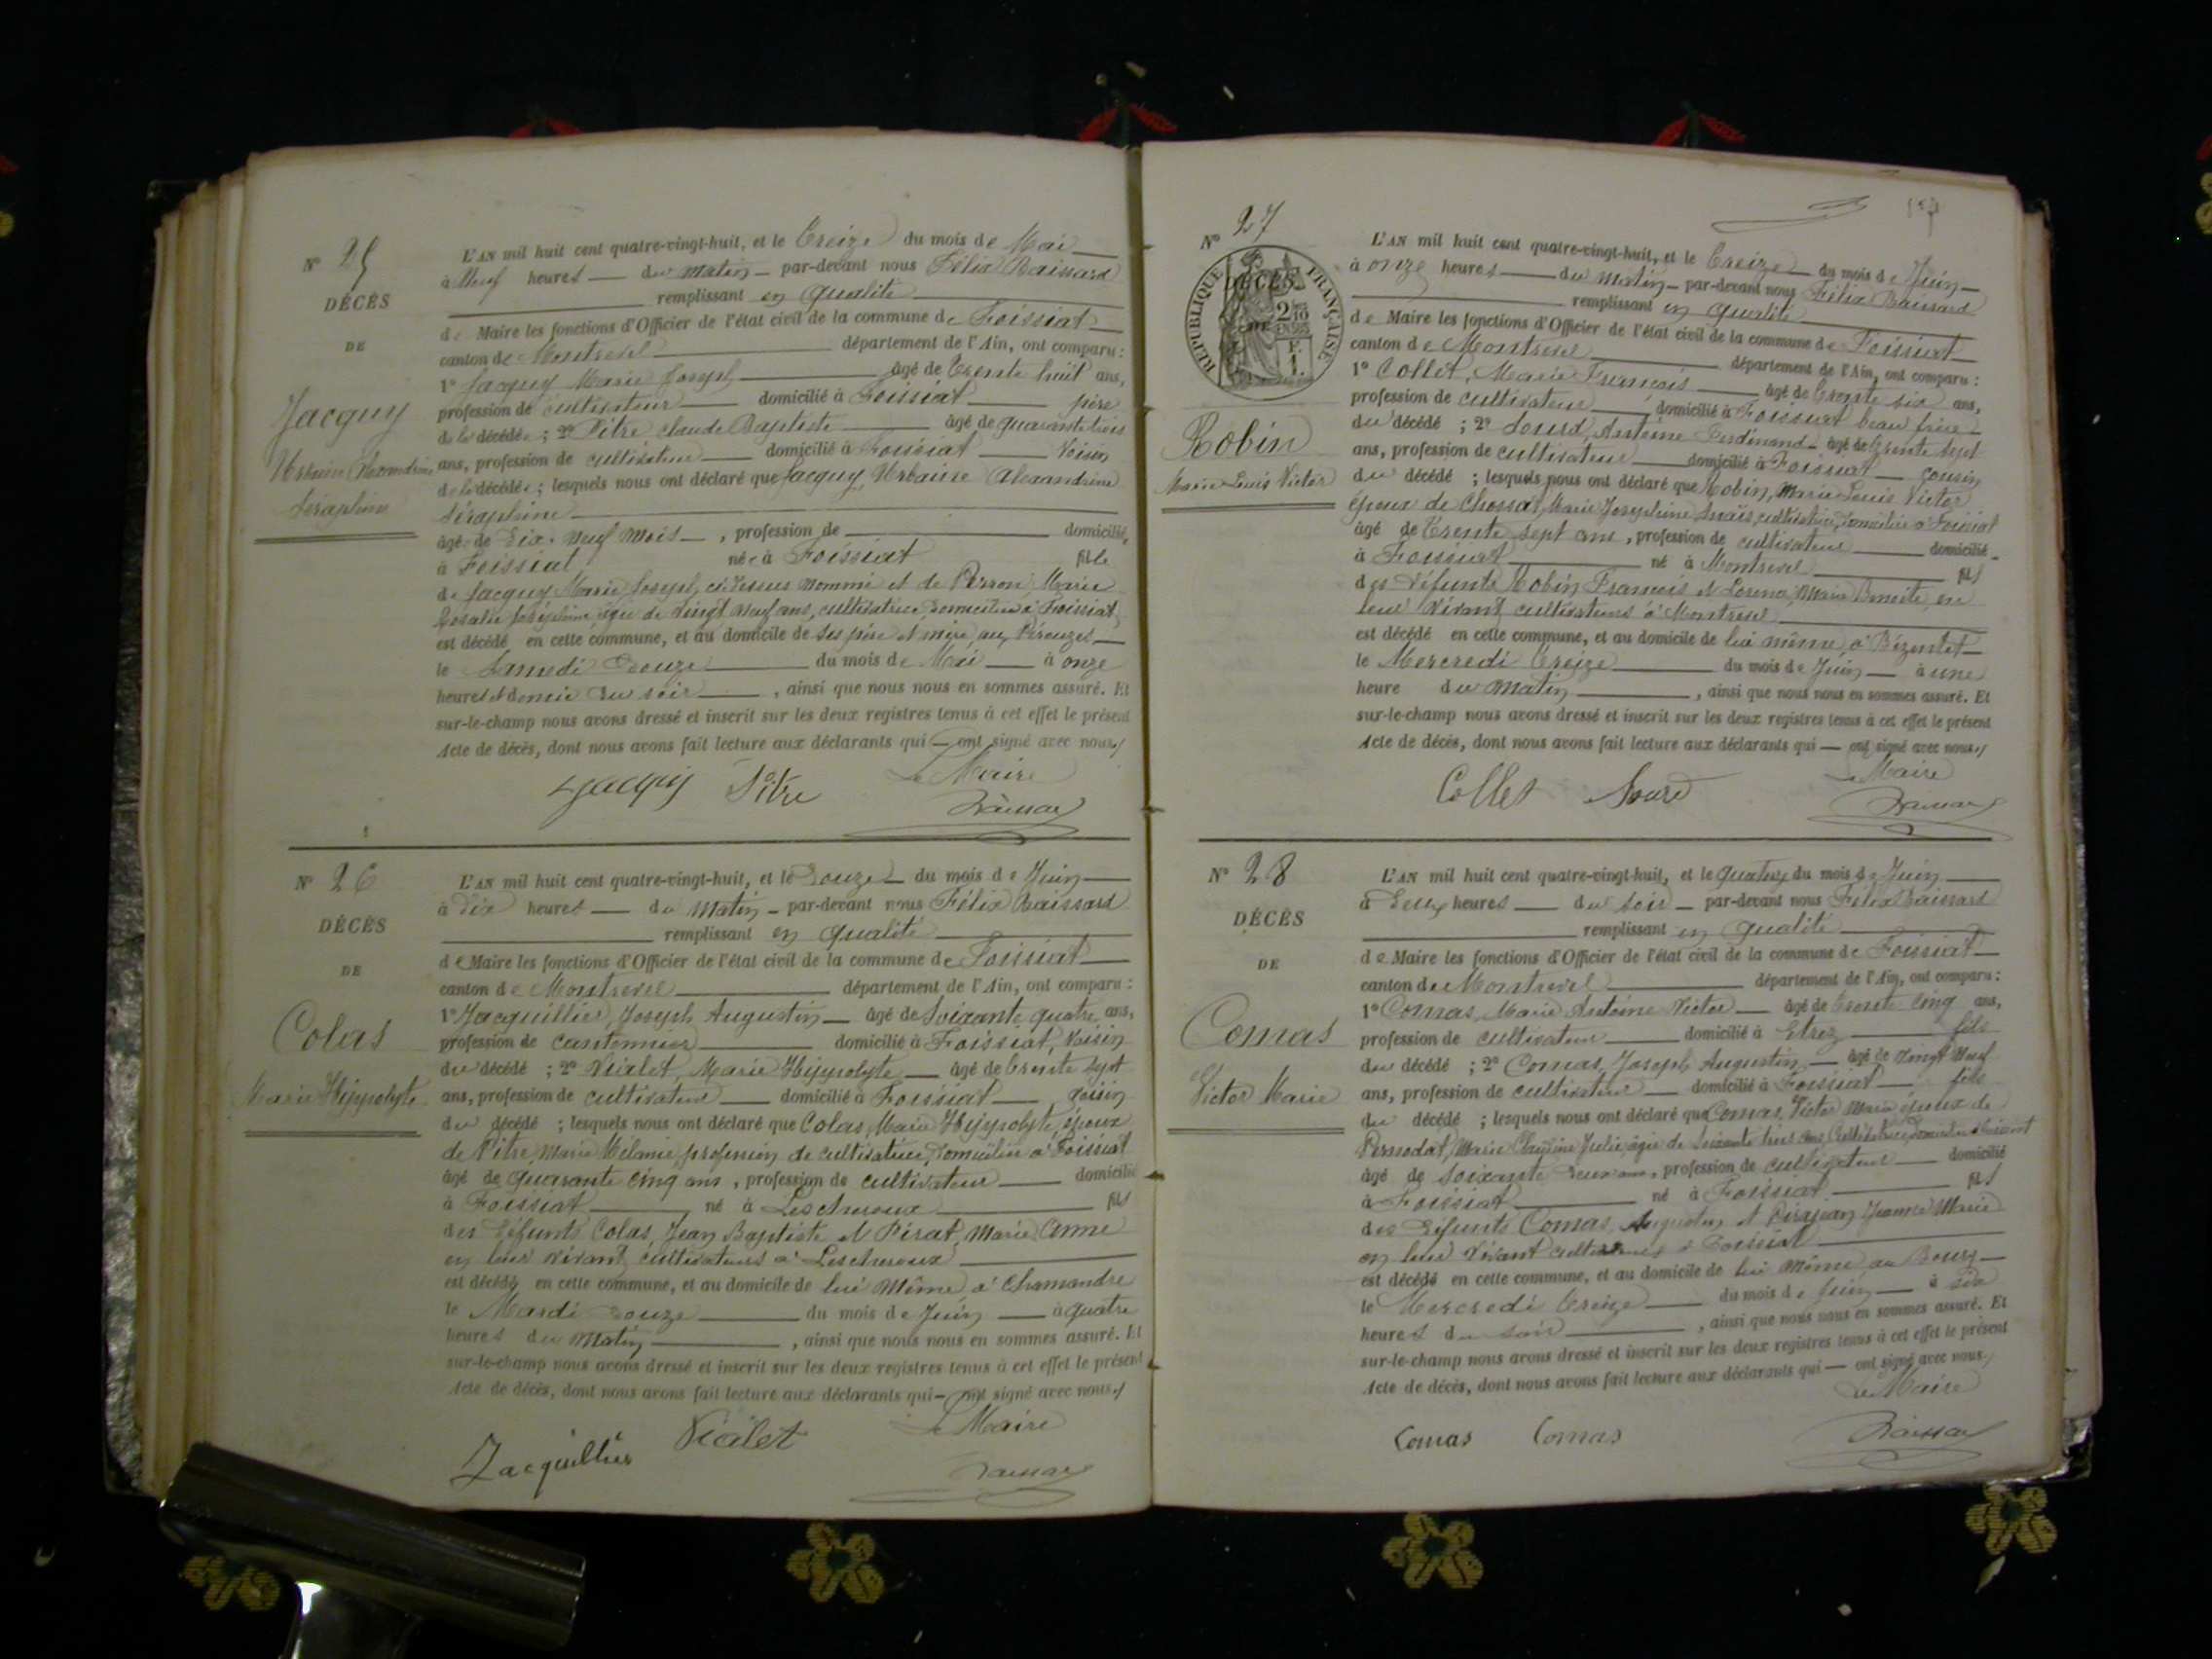 N° 25
DÉCÈS
DE
Jacquy
Urbaine Alexandrine
Séraphine
L'AN mil huit cent quatre-vingt-huit, et le Treize du mois de Mai
à Neuf heures du matin par-devant nous Félix Baissard
remplissant en qualité
de Maire les fonctions d'Officier de l'état civil de la commune de Foissiat
canton de Montrevel département de l'Ain, ont comparu :
1° Jacquy Marie Joseph âgé de Trente huit ans,
profession de cultivateur domicilié à Foissiat père
de la décédée ; 2° Pitre Claude Baptiste âgé de quarante trois
ans, profession de cultivateur domicilié à Foissiat Voisin
de la décédée ; lesquels nous ont déclaré que Jacquy Urbaine Alexandrine
Séraphine
âgée de Dix-neuf mois, profession de domiciliée
à Foissiat née à Foissiat fille
de Jacquy Marie Joseph ci-dessus nommé et de Perron Marie
Rosalie Joséphine âgée de vingt neuf ans, cultivatrice domiciliée à Foissiat
est décédé en cette commune, et au domicile de ses père et mère aux Pérouzes
le Samedi Douze du mois de Mai à onze
heures et demie du soir, ainsi que nous nous en sommes assuré. Et
sur-le-champ nous avons dressé et inscrit sur les deux registres tenus à cet effet le présent
Acte de décès, dont nous avons fait lecture aux déclarants qui — ont signé avec nous
Le Maire
Jacquy Pitre Baissard
N° 26
DÉCÈS
DE
Colas
Marie Hyppolyte
L'AN mil huit cent quatre-vingt-huit, et le Douze du mois de Juin
à Dix heures du matin par-devant nous Félix Baissard
remplissant en qualité
de Maire les fonctions d'Officier de l'état civil de la commune de Foissiat
canton de Montrevel département de l'Ain, ont comparu :
1° Jacquillier, Joseph Augustin âgé de Soixante quatre ans,
profession de cantonnier domicilié à Foissiat, voisin
du décédé ; 2° Vialet, Marie Hyppolyte âgé de trente sept
ans, profession de cultivateur domicilié à Foissiat voisin
du décédé ; lesquels nous ont déclaré que Colas, Marie Hyppolyte, époux
de Pitre Marie Mélanie profession de cultivatrice, domiciliée à Foissiat
âgé de quarante cinq ans, profession de cultivateur domicilié
à Foissiat né à Lescheroux fils
des défunts Colas Jean Baptiste et Pirat, Marie Anne
en leur vivant cultivateurs à Lescheroux
est décédé en cette commune, et au domicile de lui même à Chamandre
le Mardi Douze du mois de Juin à quatre
heures du matin, ainsi que nous nous en sommes assuré. Et
sur-le-champ nous avons dressé et inscrit sur les deux registres tenus à cet effet le présent
Acte de décès, dont nous avons fait lecture aux déclarants qui — ont signé avec nous
Le Maire
Jacquillier Vialet Baissard
N° 27
RÉPUBLIQUE FRANÇAISE
DÉCÈS
DE
Robin
Marie Louis Victor
L'AN mil huit cent quatre-vingt-huit, et le Treize du mois de Juin
à onze heures du matin par-devant nous Félix Baissard
remplissant en qualité
de Maire les fonctions d'Officier de l'état civil de la commune de Foissiat
canton de Montrevel département de l'Ain, ont comparu :
1° Collet, Marie François âgé de trente six ans,
profession de cultivateur domicilié à Foissiat beau frère
du décédé ; 2° Sourd, Antoine Ferdinand âgé de trente sept
ans, profession de cultivateur domicilié à Foissiat cousin
du décédé ; lesquels nous ont déclaré que Robin, Marie Louis Victor
époux de Chossat, Marie Joséphine Anaïs, cultivatrice, domiciliée à Foissiat
âgé de Trente sept ans, profession de cultivateur domicilié
à Foissiat né à Montrevel fils
des défunts Robin François et Marie Benoite en
leur vivant cultivateurs à Montrevel
est décédé en cette commune, et au domicile de lui même à Bézentet
le Mercredi treize du mois de Juin à une
heure du matin, ainsi que nous nous en sommes assuré. Et
sur-le-champ nous avons dressé et inscrit sur les deux registres tenus à cet effet le présent
Acte de décès, dont nous avons fait lecture aux déclarants qui — ont signé avec nous
Le Maire
Collet Sourd Baissard
N° 28
DÉCÈS
DE
Comas
Victor Marie
L'AN mil huit cent quatre-vingt-huit, et le quatorze du mois de Juin
à Deux heures du soir par-devant nous Félix Baissard
remplissant en qualité
de Maire les fonctions d'Officier de l'état civil de la commune de Foissiat
canton de Montrevel département de l'Ain, ont comparu :
1° Comas, Marie Antoine Victor âgé de trente cinq ans,
profession de cultivateur domicilié à Etrez fils
du décédé ; 2° Comas, Joseph Augustin âgé de vingt neuf
ans, profession de cultivateur domicilié à Foissiat fils
du décédé ; lesquels nous ont déclaré que Comas, Victor Marie époux de
Pernodat, Marie Claudine Julie âgée de Soixante trois ans Cultivatrice domiciliée à Foissiat
âgé de soixante deux ans, profession de cultivateur domicilié
à Foissiat né à Foissiat fils
des défunts Comas Augustin et Jeanne Marie
en leur vivant cultivateurs à Foissiat
est décédé en cette commune, et au domicile de lui même au Bourg
le Mercredi treize du mois de Juin à six
heures du soir, ainsi que nous nous en sommes assuré. Et
sur-le-champ nous avons dressé et inscrit sur les deux registres tenus à cet effet le présent
Acte de décès, dont nous avons fait lecture aux déclarants qui — ont signé avec nous
Le Maire
Comas Comas Baissard